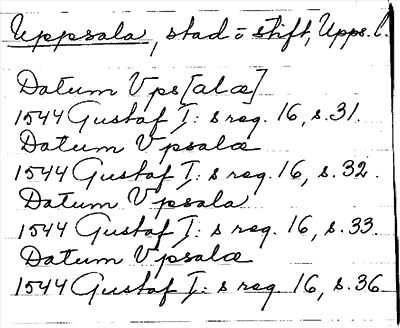 Uppsala, stad o stift, Upps. l.
Datum Vps[alæ]
1544 Gustaf I:s reg. 16, s. 31.
Datum Vpsalæ
1544 Gustaf I:s reg. 16, s. 32.
Datum Vpsala
1544 Gustaf I:s reg. 16, s. 33.
Datum Vpsalæ
1544 Gustaf I:s reg. 16, s. 36.